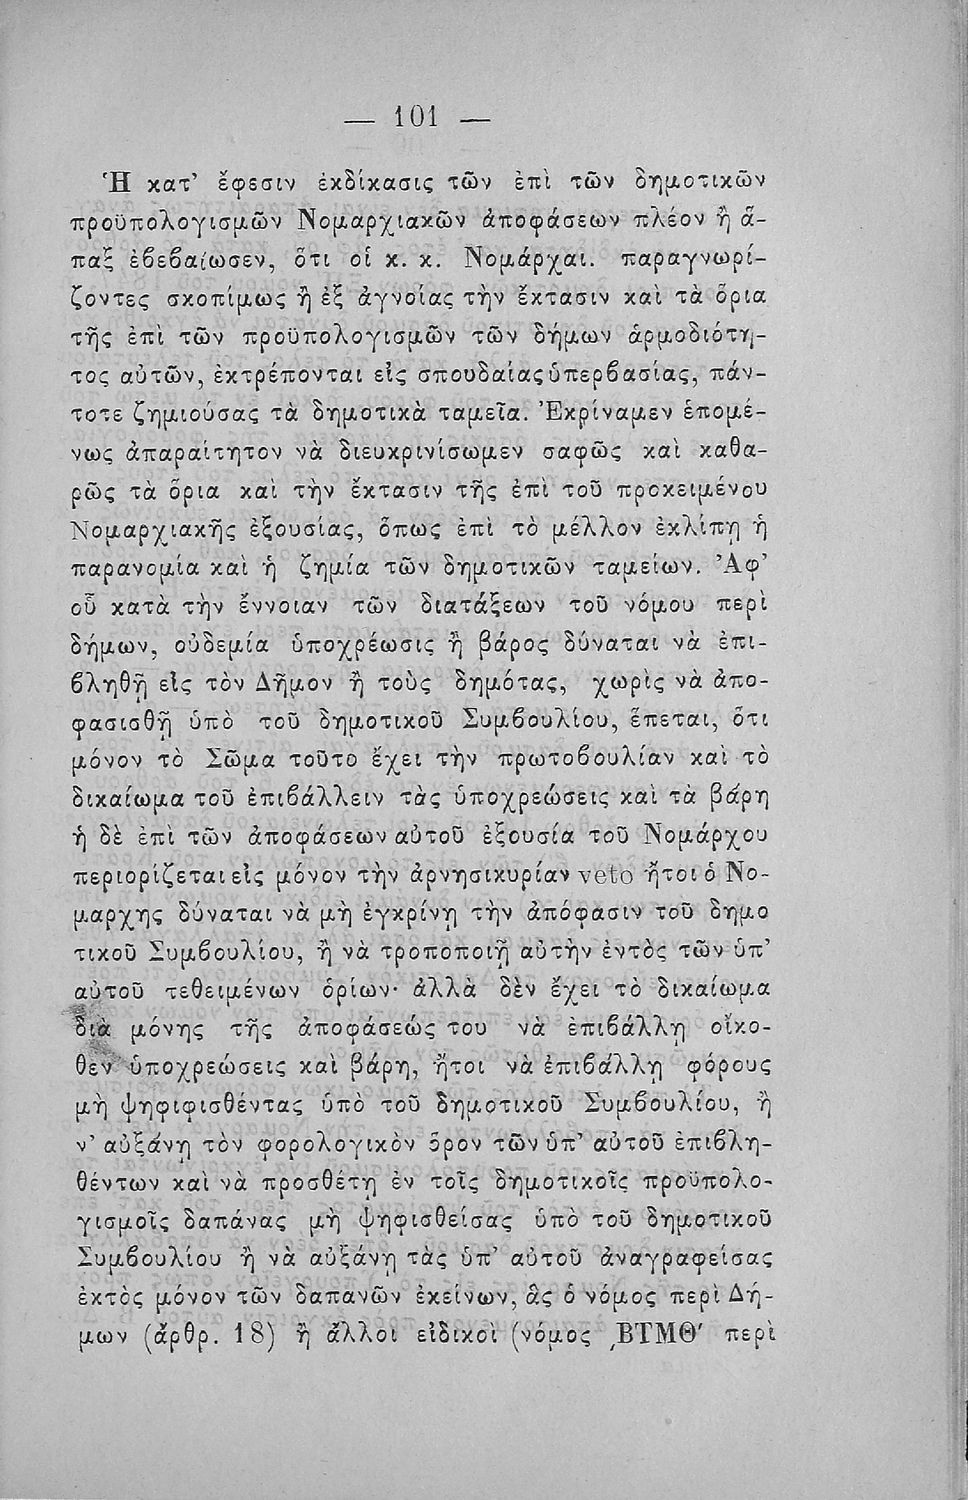 — 101 —
Ἡ κατ' ἔφεσιν ἐκδίκασις τῶν ἐπὶ τῶν δημοτικῶν
προϋπολογισμῶν Νομαρχιακῶν ἀποφάσεων πλέον ἢ ἅ-
παξ ἐβεβαίωσεν, ὅτι οἱ κ. κ. Νομάρχαι. παραγνωρί-
ζοντες σκοπίμως ἢ ἐξ ἀγνοίας τὴν ἔκτασιν καὶ τὰ ὅρια
τῆς ἐπὶ τῶν προϋπολογισμῶν τῶν δήμων ἁρμοδιότη-
τος αὐτῶν, ἐκτρέπονται εἰς σπουδαίας ὑπερβασίας, πάν-
τοτε ζημιούσας τὰ δημοτικὰ ταμεῖα. Ἐκρίναμεν ἑπομέ-
νως ἀπαραίτητον νὰ διευκρινίσωμεν σαφῶς καὶ καθα-
ρῶς τὰ ὅρια καὶ τὴν ἔκτασιν τῆς ἐπὶ τοῦ προκειμένου
Νομαρχιακῆς ἐξουσίας, ὅπως ἐπὶ τὸ μέλλον ἐκλίπῃ ἡ
παρανομία καὶ ἡ ζημία τῶν δημοτικῶν ταμείων. Ἀφ'
οὗ κατὰ τὴν ἔννοιαν τῶν διατάξεων τοῦ νόμου περὶ
δήμων, οὐδεμία ὑποχρέωσις ἢ βάρος δύναται νὰ ἐπι-
βληθῇ εἰς τὸν Δῆμον ἢ τοὺς δημότας, χωρὶς νὰ ἀπο-
φασισθῇ ὑπὸ τοῦ δημοτικοῦ Συμβουλίου, ἕπεται, ὅτι
μόνον τὸ Σῶμα τοῦτο ἔχει τὴν πρωτοβουλίαν καὶ τὸ
δικαίωμα τοῦ ἐπιβάλλειν τὰς ὑποχρεώσεις καὶ τὰ βάρη
ἡ δὲ ἐπὶ τῶν ἀποφάσεων αὐτοῦ ἐξουσία τοῦ Νομάρχου
περιορίζεται εἰς μόνον τὴν ἀρνησικυρίαν veto ἤτοι ὁ Νο-
μαρχης δύναται νὰ μὴ ἐγκρίνῃ τὴν ἀπόφασιν τοῦ δημο
τικοῦ Συμβουλίου, ἢ νὰ τροποποιῇ αὐτὴν ἐντὸς τῶν ὑπ'
αὐτοῦ τεθειμένων ὁρίων· ἀλλὰ δὲν ἔχει τὸ δικαίωμα
διὰ μόνης τῆς ἀποφάσεώς του νὰ ἐπιβάλλῃ οἴκο-
θεν ὑποχρεώσεις καὶ βάρη, ἤτοι νὰ ἐπιβάλλῃ φόρους
μὴ ψηφιφισθέντας ὑπὸ τοῦ δημοτικοῦ Συμβουλίου, ἢ
ν' αὐξάνῃ τὸν φορολογικὸν ὅρον τῶν ὑπ' αὐτοῦ ἐπιβλη-
θέντων καὶ νὰ προσθέτῃ ἐν τοῖς δημοτικοῖς προϋπολο-
γισμοῖς δαπάνας μὴ ψηφισθείσας ὑπὸ τοῦ δημοτικοῦ
Συμβουλίου ἢ νὰ αὐξάνῃ τὰς ὑπ' αὐτοῦ ἀναγραφείσας
ἐκτὸς μόνον τῶν δαπανῶν ἐκείνων, ἃς ὁ νόμος περὶ Δή-
μων (ἄρθρ. 18) ἢ ἄλλοι εἰδικοὶ (νόμος ͵ΒΤΜΘʹ περὶ